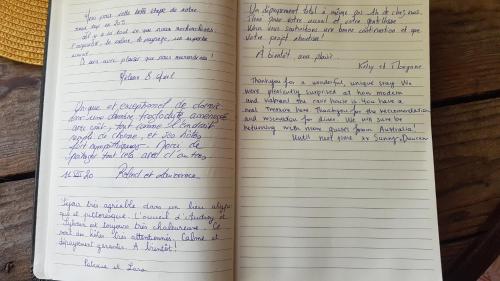 pour cette belle étape de notre
tout ce que nous recherchions :
le calme, le paysage, un superbe
A très avec plaisir que nous reviendrons !
Unique et exceptionnel de dormir
dans une demeure troglodyte aménagée
avec goût, tout comme l'endroit
rempli de charme, et les hôtes
fort sympathiques. Merci de
partager tout cela avec d'autres
20 Roland et Laurence
Séjour très agréable dans un lieu atypi-
que et pittoresque. L'accueil d'Audrey et
est toujours très chaleureux. Ce
sont des hôtes très attentionnés. Calme et
dépaysement garantis. A bientôt !
Patricia et
Un dépaysement total à même pas 1h de chez nous.
pour votre accueil et votre gentillesse.
Nous vous souhaitons une bonne continuation et que
votre projet aboutisse !
À bientôt, avec plaisir
Kelly et Morgane
Thankyou for a wonderful, unique stay. We
were pleasantly surprised at how modern
and vibrant the cave house is. You have a
real treasure here. Thankyou for the recommendation
and reservation for diner. We will sure be
returning with more guests from Australia!
Until next time xx